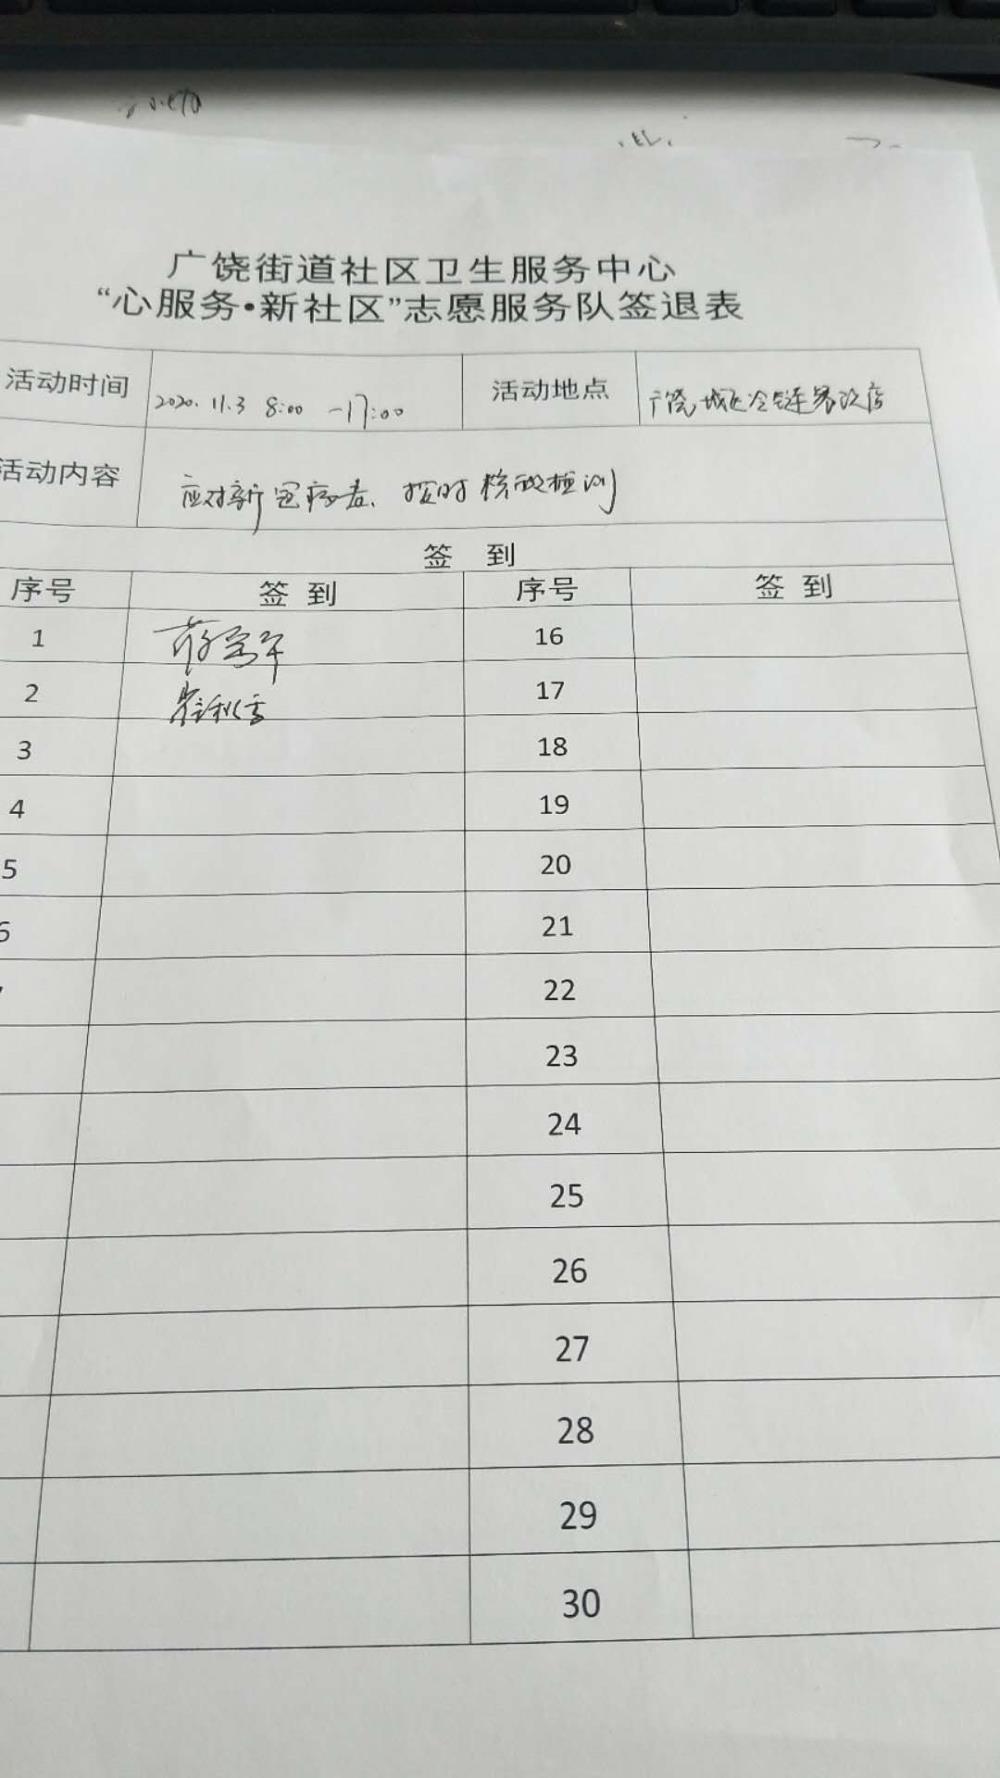 广饶街道社区卫生服务中心
“心服务•新社区”志愿服务队签退表
活动时间 2020.11.3 8:00 -17:00 活动地点 广饶城区冷链
活动内容 应对新冠病毒、按时核酸检测
签 到
序号 签 到 序号 签 到
1 16
2 17
3 18
4 19
5 20
6 21
22
23
24
25
26
27
28
29
30